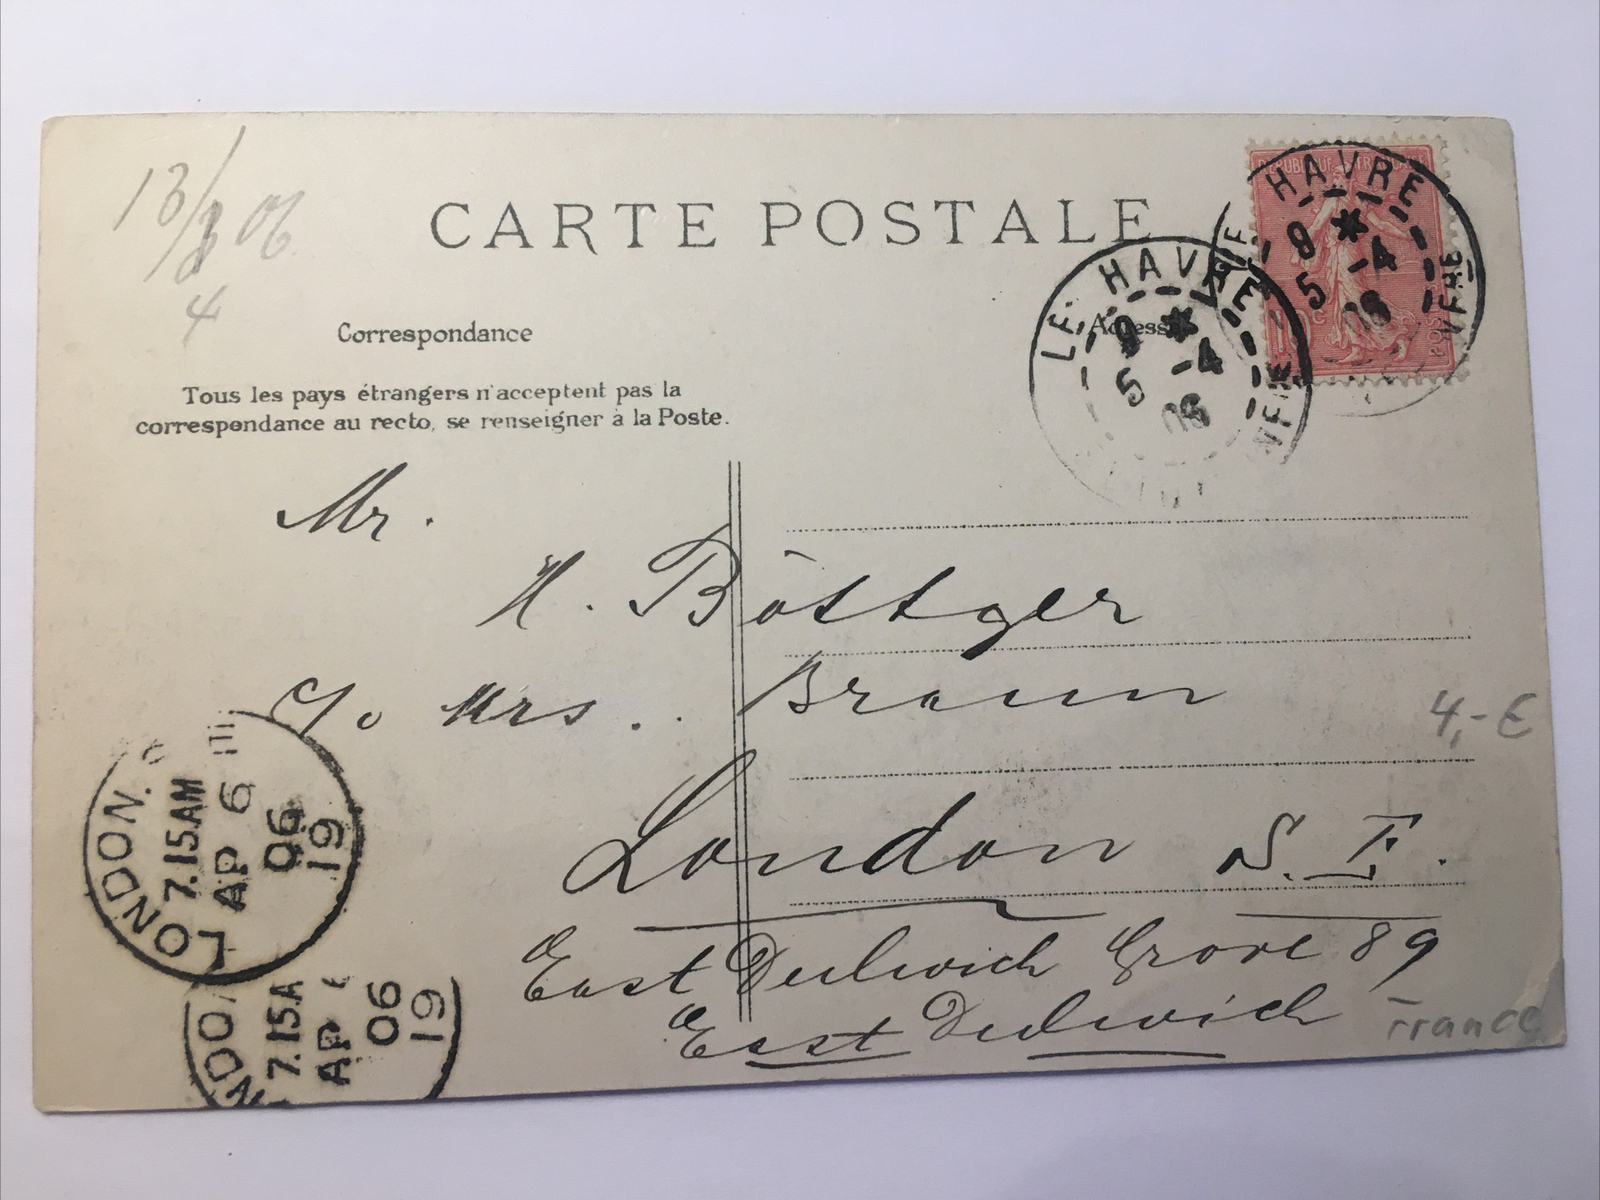 13/4 06
4
CARTE POSTALE
Correspondance
Adresse
Tous les pays étrangers n'acceptent pas la
correspondance au recto, se renseigner à la Poste.
RÉPUBLIQUE FRANÇAISE
10 c
LE HAVRE
8 *
5 -4
06
LE HAVRE
9 *
5 -4
06
Mr.
H. Böttger
c/o Mrs. Braun
London S.E.
East Dulwich Grove 89
East Dulwich
4,- €
France
LONDON.
7.15AM
AP 6
06
19
NDON
7.15A
AP
06
19